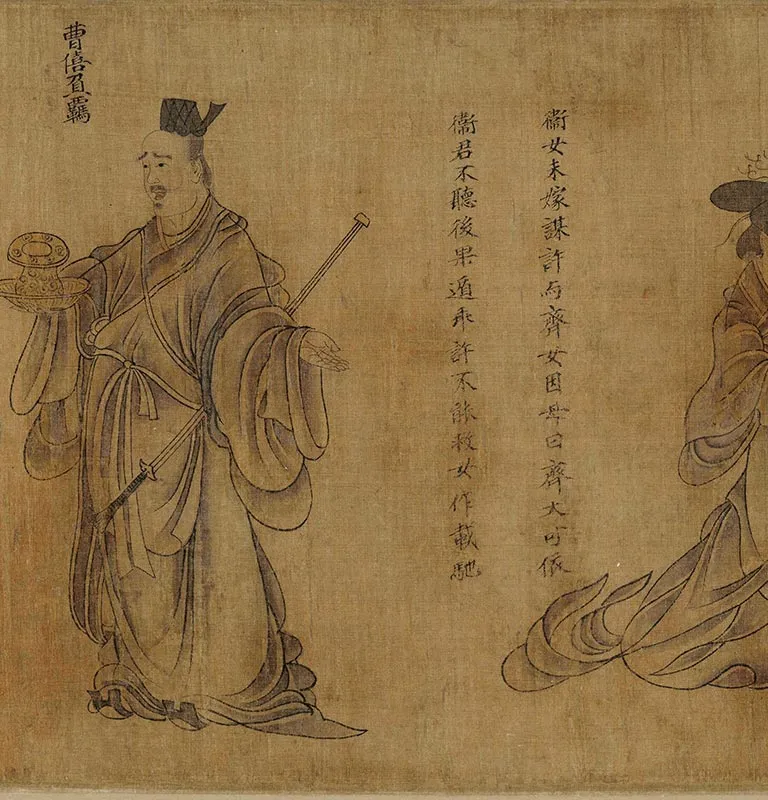 衛女未嫁謀許与齊女因母曰齊大可依
衛君不聽後果遁逃許不能救女作載馳
曹僖負覊